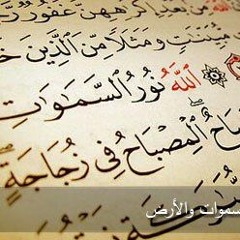 إِكْرَٰهِهِنَّ غَفُورٌ
مُّبَيِّنَٰتٍ وَمَثَلًا مِّنَ ٱلَّذِينَ خَ
ٱللَّهُ نُورُ ٱلسَّمَٰوَٰتِ
بَاحٌ ٱلْمِصْبَاحُ فِي زُجَاجَةٍ
سموات والأرض